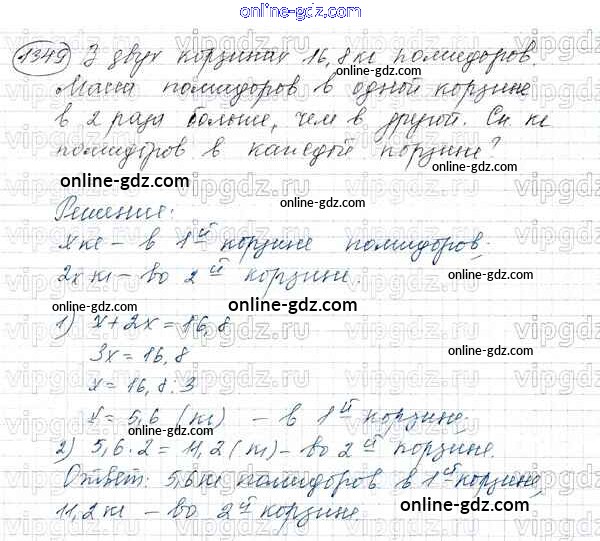 online-gdz.com
1349 З двух корзинах 16,8 кг помидоров.
Масса помидоров в одной корзине
в 2 раза больше, чем в другой. Ск. кг
помидоров в каждой корзине?
online-gdz.com online-gdz.com
Решение:
x кг – в 1й корзине помидоров;
online-gdz.com
2x кг – во 2й корзине.
online-gdz.com
1) x + 2x = 16,8
3x = 16,8
online-gdz.com
x = 16,8 : 3
x = 5,6 (кг) – в 1й корзине.
2) 5,6 · 2 = 11,2 (кг) – во 2й корзине.
online-gdz.com
Ответ: 5,6 кг помидоров в 1й корзине,
11,2 кг – во 2й корзине.
online-gdz.com
vipgdz.ru vipgdz.ru vipgdz.ru